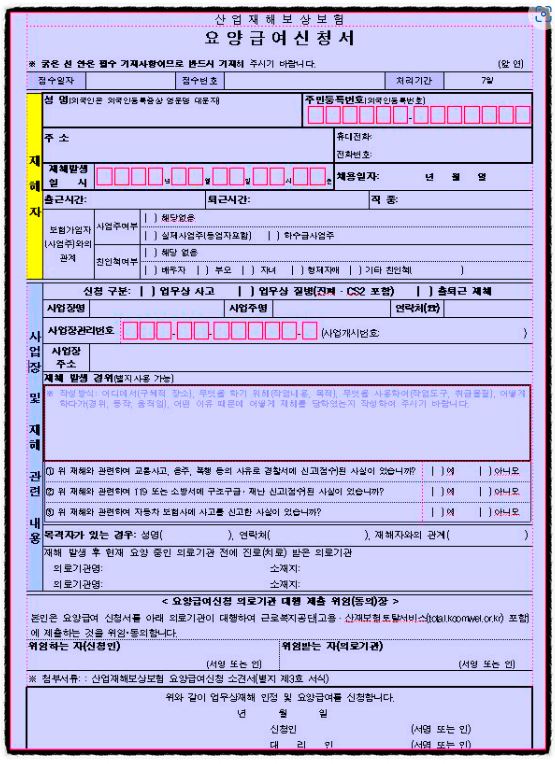 산업재해보상보험
요양급여신청서
※ 굵은 선 안은 필수 기재사항이므로 반드시 기재하여 주시기 바랍니다. (앞 면)
접수일자 접수번호 처리기간 7일
성 명(외국인은 외국인등록증상 영문명 대문자) 주민등록번호(외국인등록번호)
주 소 휴대전화:
전화번호:
재해자
재해발생 일 시 년 월 일 시 분 채용일자: 년 월 일
출근시간: 퇴근시간: 직 종:
보험가입자(사업주)와의 관계
사업주여부 [ ] 해당없음
[ ] 실제사업주(동업자포함) [ ] 하수급사업주
친인척여부 [ ] 해당 없음
[ ] 배우자 [ ] 부모 [ ] 자녀 [ ] 형제자매 [ ] 기타 친인척( )
사업장 및 재해 관련 내용
신청 구분: [ ] 업무상 사고 [ ] 업무상 질병(진폐·CS2 포함) [ ] 출퇴근 재해
사업장명 사업주명 연락처(☎)
사업장관리번호 - - - (사업개시번호: )
사업장 주소
재해 발생 경위(별지사용 가능)
※ 작성방식: 어디에서(구체적 장소), 무엇을 하기 위해(작업내용, 목적), 무엇을 사용하여(작업도구, 취급물질), 어떻게
하다가(경위, 동작, 움직임), 어떤 이유 때문에 어떻게 재해를 당하였는지 작성하여 주시기 바랍니다.
① 위 재해와 관련하여 교통사고, 음주, 폭행 등의 사유로 경찰서에 신고(접수)된 사실이 있습니까? [ ]예 [ ]아니오
② 위 재해와 관련하여 119 또는 소방서에 구조구급·재난 신고(접수)된 사실이 있습니까? [ ]예 [ ]아니오
③ 위 재해와 관련하여 자동차 보험사에 사고를 신고한 사실이 있습니까? [ ]예 [ ]아니오
목격자가 있는 경우: 성명( ), 연락처( ), 재해자와의 관계( )
재해 발생 후 현재 요양 중인 의료기관 전에 진료(치료) 받은 의료기관
의료기관명: 소재지:
의료기관명: 소재지:
< 요양급여신청 의료기관 대행 제출 위임(동의)장 >
본인은 요양급여 신청서를 아래 의료기관이 대행하여 근로복지공단(고용·산재보험토탈서비스(total.kcomwel.or.kr) 포함)
에 제출하는 것을 위임·동의합니다.
위임하는 자(신청인) 위임받는 자(의료기관)
(서명 또는 인) (서명 또는 인)
※ 첨부서류: : 산업재해보상보험 요양급여신청 소견서(별지 제3호 서식)
위와 같이 업무상재해 인정 및 요양급여를 신청합니다.
년 월 일
신청인 (서명 또는 인)
대 리 인 (서명 또는 인)